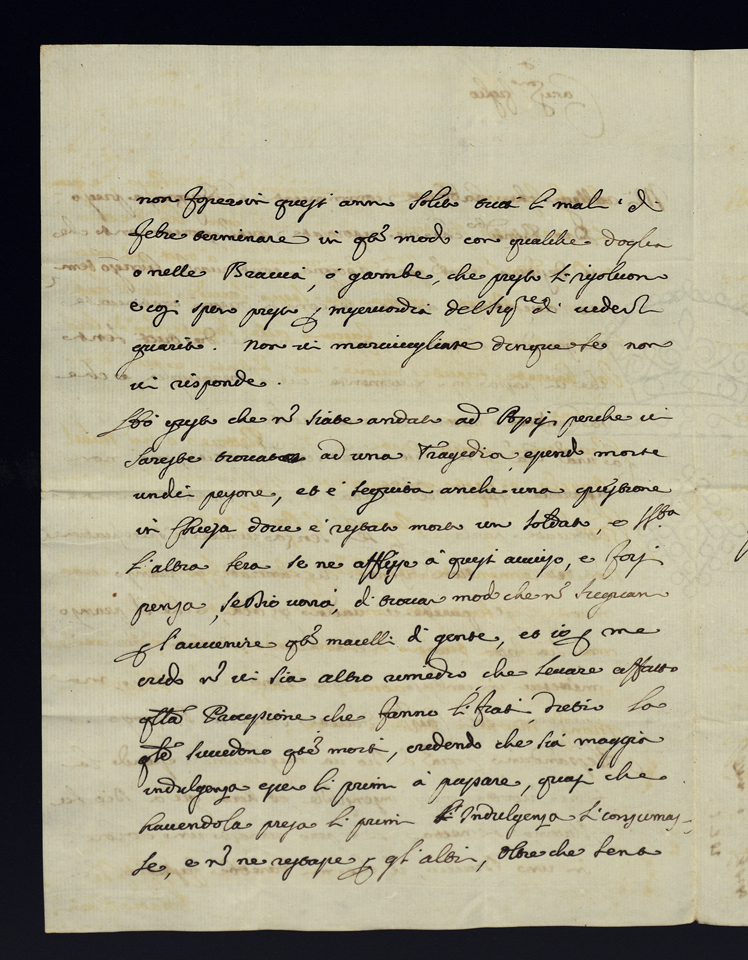 non fossero in questi anni soliti tutti li mali di
febre terminare in qto modo con qualche doglia
o nelle Braccia, o gambe, che presto si risolvon
e così spero presto p misericordia del Sigre di vederlo
guarito. Non vi maravigliate dunque se non
vi risponde.
Hò gusto che nō siate andato ad Popoj perche vi
sareste trovato ad una Tragedia essendo morte
undici persone, et è seguita anche una questione
in Chiesa dove è restato morto un soldato, e
l'altra sera se ne affisse a questi avviso, e forsi
pensa, se Dio vorrà, di trovar modo che nō seguano
p l'avvenire qti macelli di gente, et io p me
credo nō vi sia altro rimedio che levare affatto
qlla Processione che fanno li frati dietro la
qle succedono qti morti, credendo che sia maggior
indulgenza essere li primi à passare, quasi che
havendola presa li primi l'Indulgenza si consumas-
se, e nō ne restasse p gl'altri, oltre che